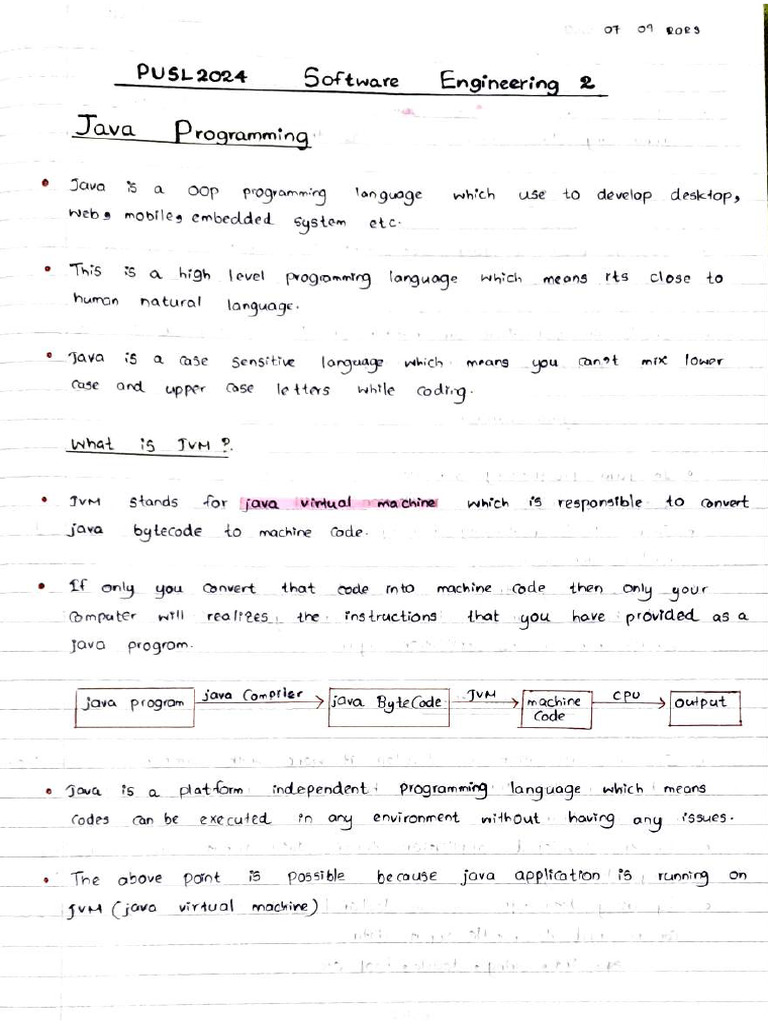 07 09 2023
PUSL2024 Software Engineering 2
Java Programming
• Java is a OOP programming language which use to develop desktop,
web, mobile, embedded system etc.
• This is a high level programming language which means its close to
human natural language.
• Java is a case sensitive language which means you can't mix lower
case and upper case letters while coding.
What is JVM?
• JVM stands for java virtual machine which is responsible to convert
java bytecode to machine code.
• If only you convert that code into machine code then only your
computer will realizes the instructions that you have provided as a
java program.
java program java Compiler java ByteCode JVM machine CPU output
Code
• Java is a platform independent programming language which means
codes can be executed in any environment without having any issues.
• The above point is possible because java application is running on
JVM (java virtual machine)